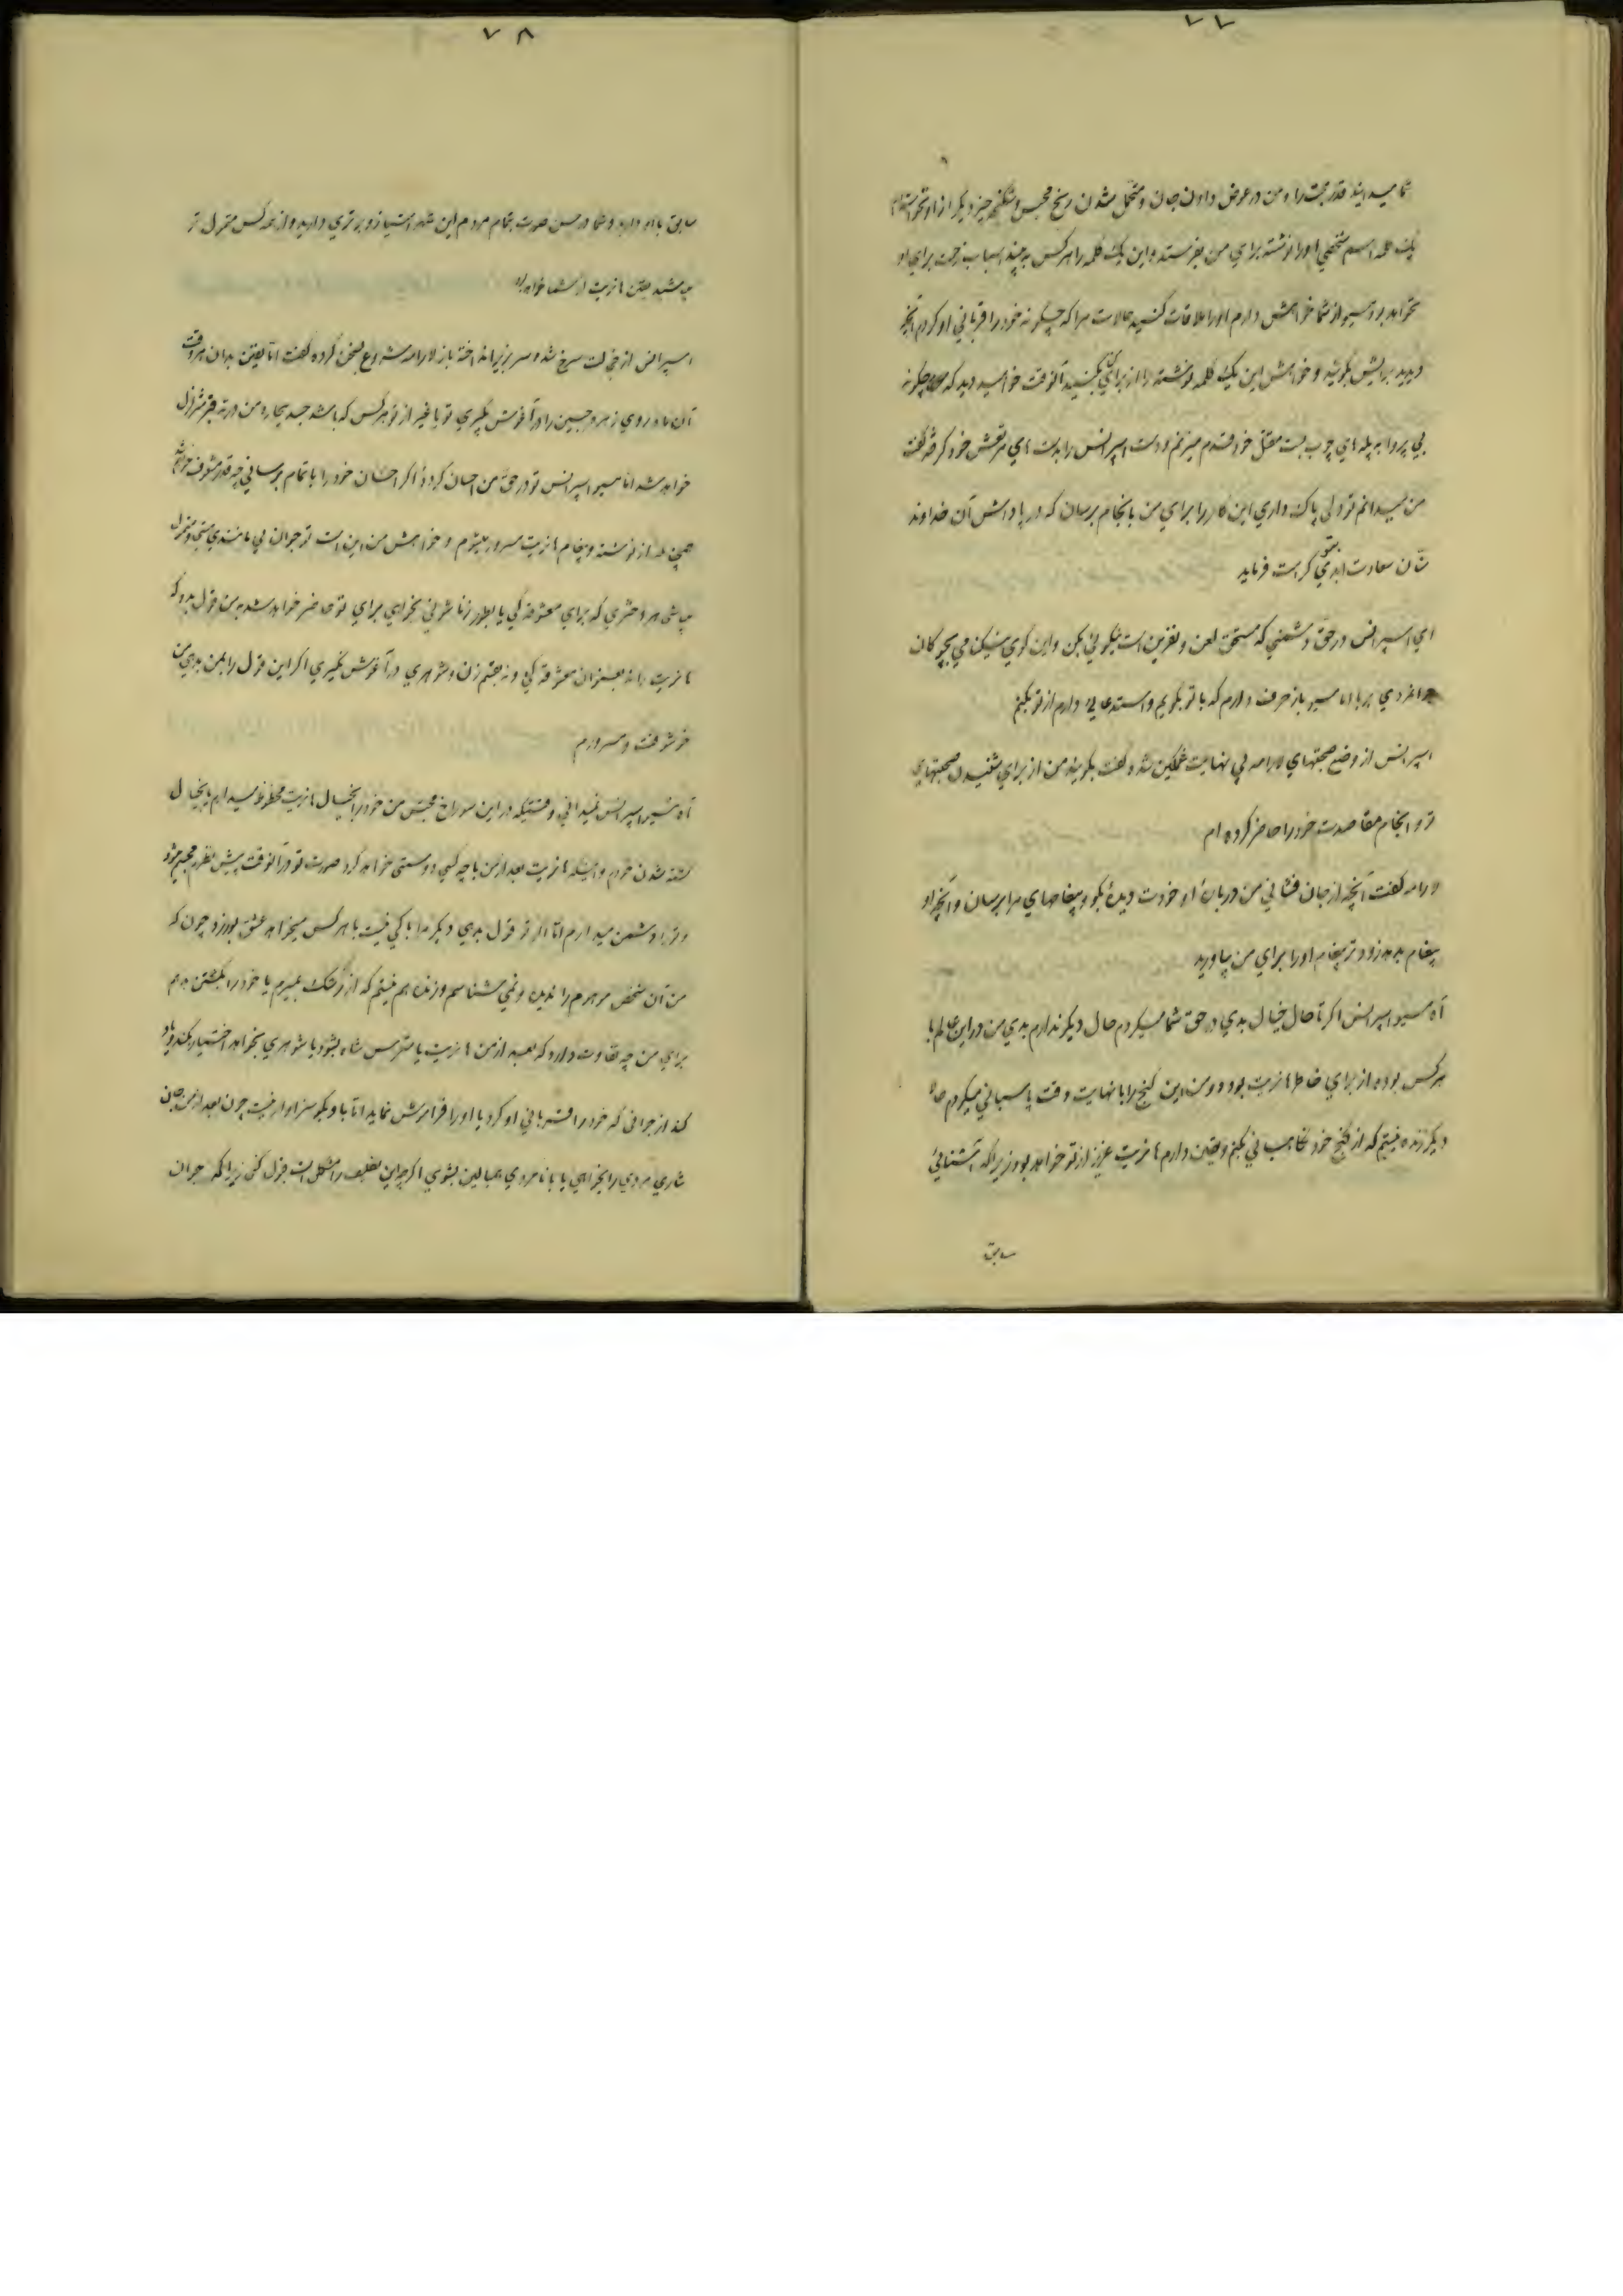 ۷۷
شما میدانید قدر محبت را و من در عوض دادن جان و متحمل شدن رنج محبس و شکنجه چیز دیگر از او نخواسته‌ام
یک کلمه اسم شخصی او را نوشته برای من بفرستد و این یک کلمه را هر کس به بیند اسباب زحمت برای او
نخواهد بود مسیو از شما خواهش دارم او را ملاقات کنید حالات مرا که چگونه خود را قربانی او کردم آنچه
دیدید برایش بگوئید و خواهش این یک کلمه نوشته را از برای من بکنید آنوقت خواهید دید که چگونه
بی پروا به پله‌های چوب بست مقتل خود قدم میزنم و دست اسپرانس را بدست‌های مرتعش خود گرفته گفت
من میدانم تو دلی پاک داری این کار را برای من بانجام برسان که در پاداش آن خداوند
منّان سعادت ابدی بتو کرامت فرماید
ای اسپرانس در حق دشمنی که مستحق لعن و نفرین است نیکوئی بکن و این گوی نیکنامی بچوگان
جوانمردی بربا اما مسیو باز حرف دارم که با تو بگویم و استدعائی دارم از تو بکنم
اسپرانس از وضع صحبتهای لارامه بی نهایت غمگین شد و گفت بگوئید من از برای شنیدن صحبتهای
تو و انجام مقاصدت خود را حاضر کرده‌ام
لارامه گفت آنچه از جان فشانی من درباره او خودت دیدهٔ بگو و پیغامهای مرا برسان و آنچه او
پیغام بدهد زودتر پیغام او را برای من بیاورید
آه مسیو اسپرانس اگر تا حال خیال بدی در حق شما میکردم حال دیگر ندارم بدی من در این عالم با
هر کس بوده از برای خاطر هانریت بود و من این گنج را با نهایت دقت پاسبانی میکردم حالا
دیگر زنده نیستم که از گنج خود نگاهبانی بکنم و یقین دارم هانریت عزیز از تو خواهد بود زیرا که آشنائی
سابق
۷۸
سابق با او دارید و شما در حسن صورت بتمام مردم این شهر امتیاز و برتری دارید و از همه کس متمول تر
میباشید یقین هانریت از شما خواهد بود
اسپرانس از خجالت سرخ شد و سر بزیر انداخته باز لارامه شروع بسخن کرده گفت اما یقین بدان هر وقت
آن ماه روی زهره جبین را در آغوش بگیری تو یا غیر از تو هر کس که باشد جسد بیچاره من در ته قبر متزلزل
خواهد شد اما مسیو اسپرانس تو در حق من احسان کردهٔ اگر احسان خود را باتمام برسانی چه قدر مشعوف خواهم شد
همچنانکه از نوشته و پیغام هانریت مسرور میشوم و خواهش من این است تو جوان بی مانندی هستی و متمول
میباشی هر دختری که برای معشوقه‌گی یا بطور زناشوئی بخواهی برای تو حاضر خواهد شد به من قول بده که
هانریت را نه بعنوان معشوقه‌گی و نه بقسم زن و شوهری در آغوش نگیری اگر این قول را بمن بدهی من
خوشوقت و مسرورم
آه مسیو اسپرانس نمیدانی وقتیکه در این سوراخ محبس من خود را بخیال هانریت محظوظ میدارم یا بخیال
کشته شدن خودم و اینکه هانریت بعد از من با چه کسی دوستی خواهد کرد صورت تو در آنوقت پیش نظرم مجسم میشود
و ترا دشمن میدارم اما اگر تو قول بدهی دیگر مرا باکی نیست با هر کس میخواهد عشق بورزد چون که
من آن شخص موهوم را ندیده و نمی شناسم و زنده هم نیستم که از رشک بمیرم یا خود را بکشتن دهم
برای من چه تفاوت دارد که بعد از من هانریت یا مترس شاه بشود یا شوهری بخواهد اختیار بکند و یاد
کند از جوانی که خود را قربانی او کرد یا او را فراموش نماید اما باو بگو سزاوار نیست چون بعد از من جان
نثاری مردی را بخواهی یا با نامردی همبالین بشوی اگرچه این تکلیف را مشکل است قبول کنی زیرا که جوان